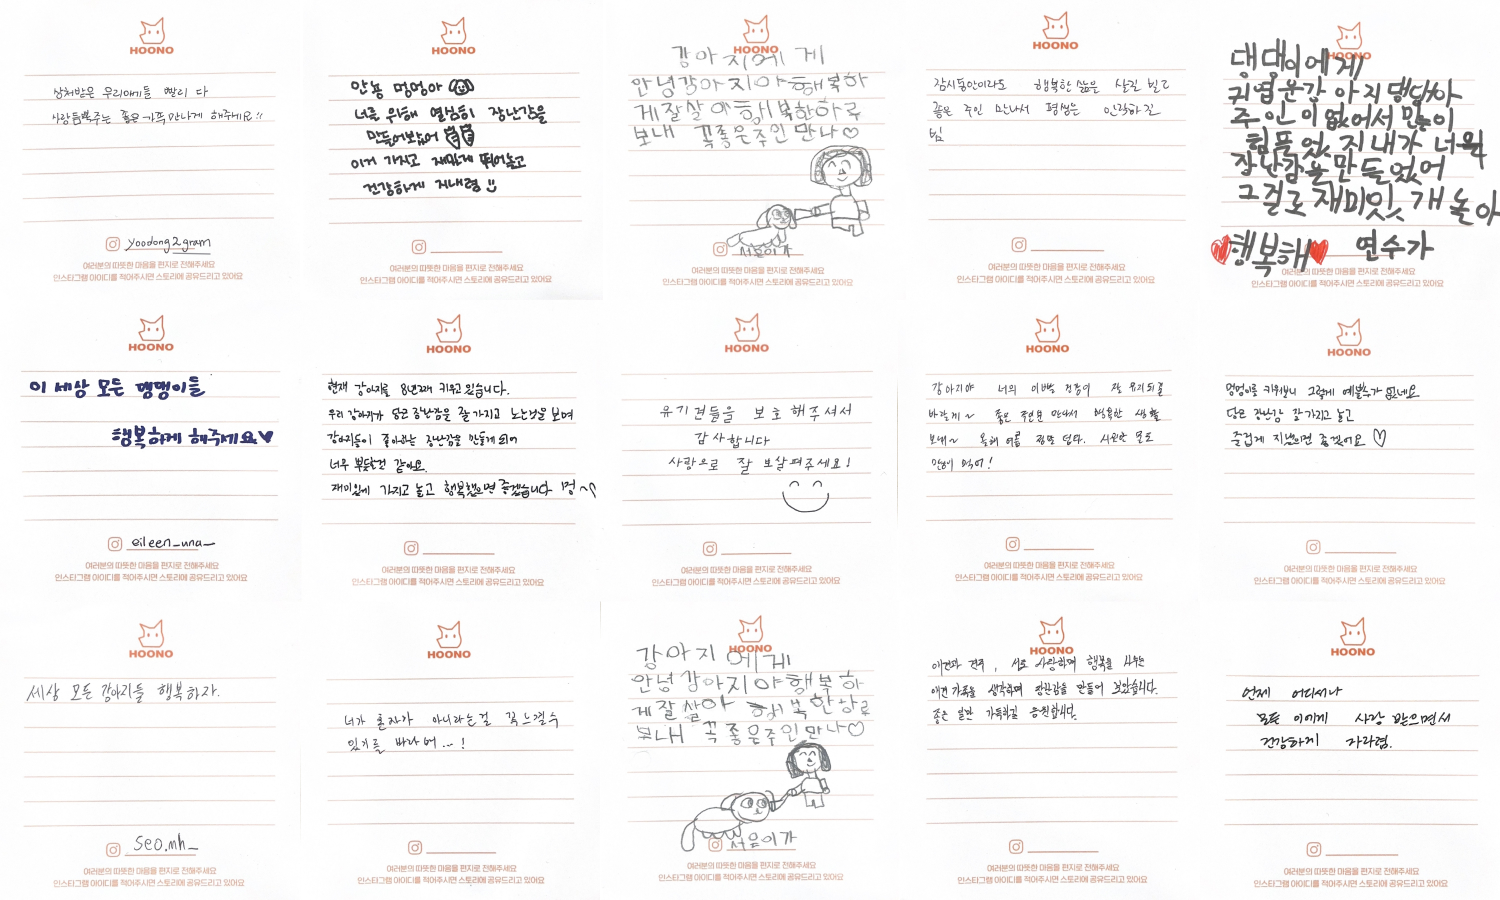 HOONO
상처받은 우리아이들 빨리 다
사랑듬뿍주는 좋은 가족 만나게 해주세요!!
yoodong2gram
여러분의 따뜻한 마음을 편지로 전해주세요
인스타그램 아이디를 적어주시면 스토리에 공유드리고 있어요
HOONO
안뇽 멍멍아
너를 위해 열심히 장난감을
만들어봤어
이거 가지고 재밌게 뛰어놀고
건강하게 지내렴
여러분의 따뜻한 마음을 편지로 전해주세요
인스타그램 아이디를 적어주시면 스토리에 공유드리고 있어요
HOONO
강아지에게
안녕강아지야행복하
게잘살아행복한하루
보내 꼭좋은주인만나♡
서윤이가
여러분의 따뜻한 마음을 편지로 전해주세요
인스타그램 아이디를 적어주시면 스토리에 공유드리고 있어요
HOONO
잠시동안이라도 행복한 삶은 살길 빌고
좋은 주인 만나서 평생은
빎
여러분의 따뜻한 마음을 편지로 전해주세요
인스타그램 아이디를 적어주시면 스토리에 공유드리고 있어요
HOONO
댕댕이에게
귀엽운강아지댕댕아
주인이없어서 많이
힘들었지내가 너
장난감을만들었어
그걸로재미있개놀아
행복해 연수가
여러분의 따뜻한 마음을 편지로 전해주세요
인스타그램 아이디를 적어주시면 스토리에 공유드리고 있어요
HOONO
이 세상 모든 댕댕이들
행복하게 해주세요♥
eileen_una_
여러분의 따뜻한 마음을 편지로 전해주세요
인스타그램 아이디를 적어주시면 스토리에 공유드리고 있어요
HOONO
현재 강아지를 8년째 키우고 있습니다.
우리 강아지가 담근 장난감을 잘 가지고 노는것을 보며
강아지들이 좋아하는 장난감을 만들게 되어
너무 뿌듯한것 같아요.
재미있게 가지고 놀고 행복했으면 좋겠습니다 멍~
여러분의 따뜻한 마음을 편지로 전해주세요
인스타그램 아이디를 적어주시면 스토리에 공유드리고 있어요
HOONO
유기견들을 보호해주셔서
감사합니다
사랑으로 잘 보살펴주세요!
여러분의 따뜻한 마음을 편지로 전해주세요
인스타그램 아이디를 적어주시면 스토리에 공유드리고 있어요
HOONO
강아지야 너의 이빨 건강이 잘 유지되길
바랄게~ 좋은 주인분 만나서 행복한 생활
보내~ 올해 여름 정말 덥다. 시원한 물도
많이 먹어!
여러분의 따뜻한 마음을 편지로 전해주세요
인스타그램 아이디를 적어주시면 스토리에 공유드리고 있어요
HOONO
멍멍이를 키워보니 그렇게 예쁠수가 없네요
담근 장난감 잘 가지고 놀고
즐겁게 지냈으면 좋겠어요 ♡
여러분의 따뜻한 마음을 편지로 전해주세요
인스타그램 아이디를 적어주시면 스토리에 공유드리고 있어요
HOONO
세상 모든 강아지들 행복하자.
seo.mh_
여러분의 따뜻한 마음을 편지로 전해주세요
인스타그램 아이디를 적어주시면 스토리에 공유드리고 있어요
HOONO
너가 혼자가 아니라는걸 꼭 느낄수
있기를 바라며...!
여러분의 따뜻한 마음을 편지로 전해주세요
인스타그램 아이디를 적어주시면 스토리에 공유드리고 있어요
HOONO
강아지에게
안녕강아지야행복하
게잘살아 행복한하루
보내 꼭좋은주인만나♡
서윤이가
여러분의 따뜻한 마음을 편지로 전해주세요
인스타그램 아이디를 적어주시면 스토리에 공유드리고 있어요
HOONO
애견과 견주, 서로 사랑하며 행복을 나누는
애견 가족을 생각하며 장난감을 만들어 보았습니다.
좋은 일만 가득하길 응원합니다.
여러분의 따뜻한 마음을 편지로 전해주세요
인스타그램 아이디를 적어주시면 스토리에 공유드리고 있어요
HOONO
언제 어디서나
모든 이에게 사랑 받으면서
건강하게 자라렴.
여러분의 따뜻한 마음을 편지로 전해주세요
인스타그램 아이디를 적어주시면 스토리에 공유드리고 있어요